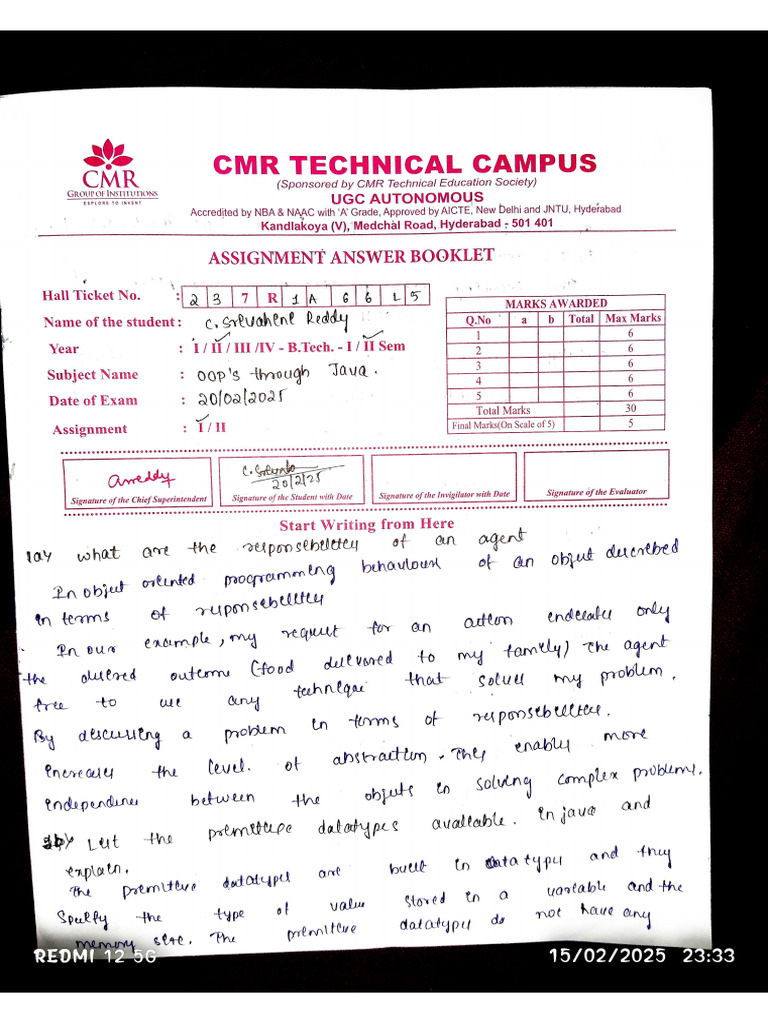 CMR
GROUP OF INSTITUTIONS
EXPLORE TO INVENT
CMR TECHNICAL CAMPUS
(Sponsored by CMR Technical Education Society)
UGC AUTONOMOUS
Accredited by NBA & NAAC with 'A' Grade, Approved by AICTE, New Delhi and JNTU, Hyderabad
Kandlakoya (V), Medchal Road, Hyderabad - 501 401
ASSIGNMENT ANSWER BOOKLET
Hall Ticket No. : 2 3 7 R 1 A 6 6 L 5
Name of the student : C. Srevahene Reddy
Year : I / II / III /IV - B.Tech. - I / II Sem
Subject Name : OOP's through Java.
Date of Exam : 20/02/2025
Assignment : I / II
MARKS AWARDED
Q.No a b Total Max Marks
1 6
2 6
3 6
4 6
5 6
Total Marks 30
Final Marks(On Scale of 5) 5
Signature of the Chief Superintendent
20/2/25
Signature of the Student with Date
Signature of the Invigilator with Date
Signature of the Evaluator
Start Writing from Here
1a) what are the responsebelitey of an agent
In object oriented programming behaviour of an object described
in terms of responsebelitey
In our example, my request for an action endecates only
the desered outcome (food delevared to my family) The agent
free to use any technique that solves my problem.
By descussing a problem in terms of responsebelitees.
increases the level of abstraction. They enably more
independenes between the objects in solving complex problems.
List the premiteve datatypes avaliable. in java and
explain.
The premiteve datatypes are built in datatypes and they
Specefy the type of value stored in a varedable and the
memory size. The premiteve datatypes do not have any
REDMI 12 5G
15/02/2025 23:33